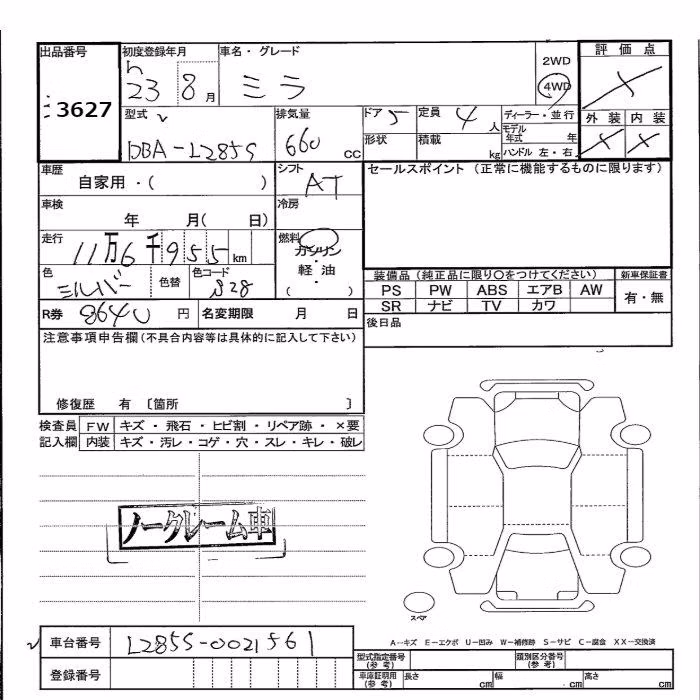 出品番号 初度登録年月 車名・グレード 2WD 評価点
3627 h23 8月 ミラ 4WD ×
型式 排気量 ドア 5 定員 4人 ディーラー・並行 外装 内装
DBA-L285S 660cc 形状 積載 kg モデル年式 年 ハンドル 左・右 × ×
車歴 シフト セールスポイント (正常に機能するものに限ります)
自家用・( ) AT
車検 冷房
年 月( 日)
走行 燃料
11万6千955km ガソリン・軽油
( )
色 色替 色コード 装備品 (純正品に限り〇をつけてください) 新車保証書
シルバー S28 PS PW ABS エアB AW 有・無
SR ナビ TV カワ
R券 8640円 名変期限 月 日 後日品
注意事項申告欄(不具合内容等は具体的に記入して下さい)
修復歴 有 〔箇所 〕
検査員 FW キズ・飛石・ヒビ割・リペア跡・×要
記入欄 内装 キズ・汚レ・コゲ・穴・スレ・キレ・破レ
ノークレーム車
スペア
A―キズ E―エクボ U―凹み W―補修跡 S―サビ C―腐食 XX―交換済
車台番号 L285S-0021561 型式指定番号(参考) 類別区分番号(参考)
登録番号 車庫証明用(参考) 長さ cm 幅 cm 高さ cm